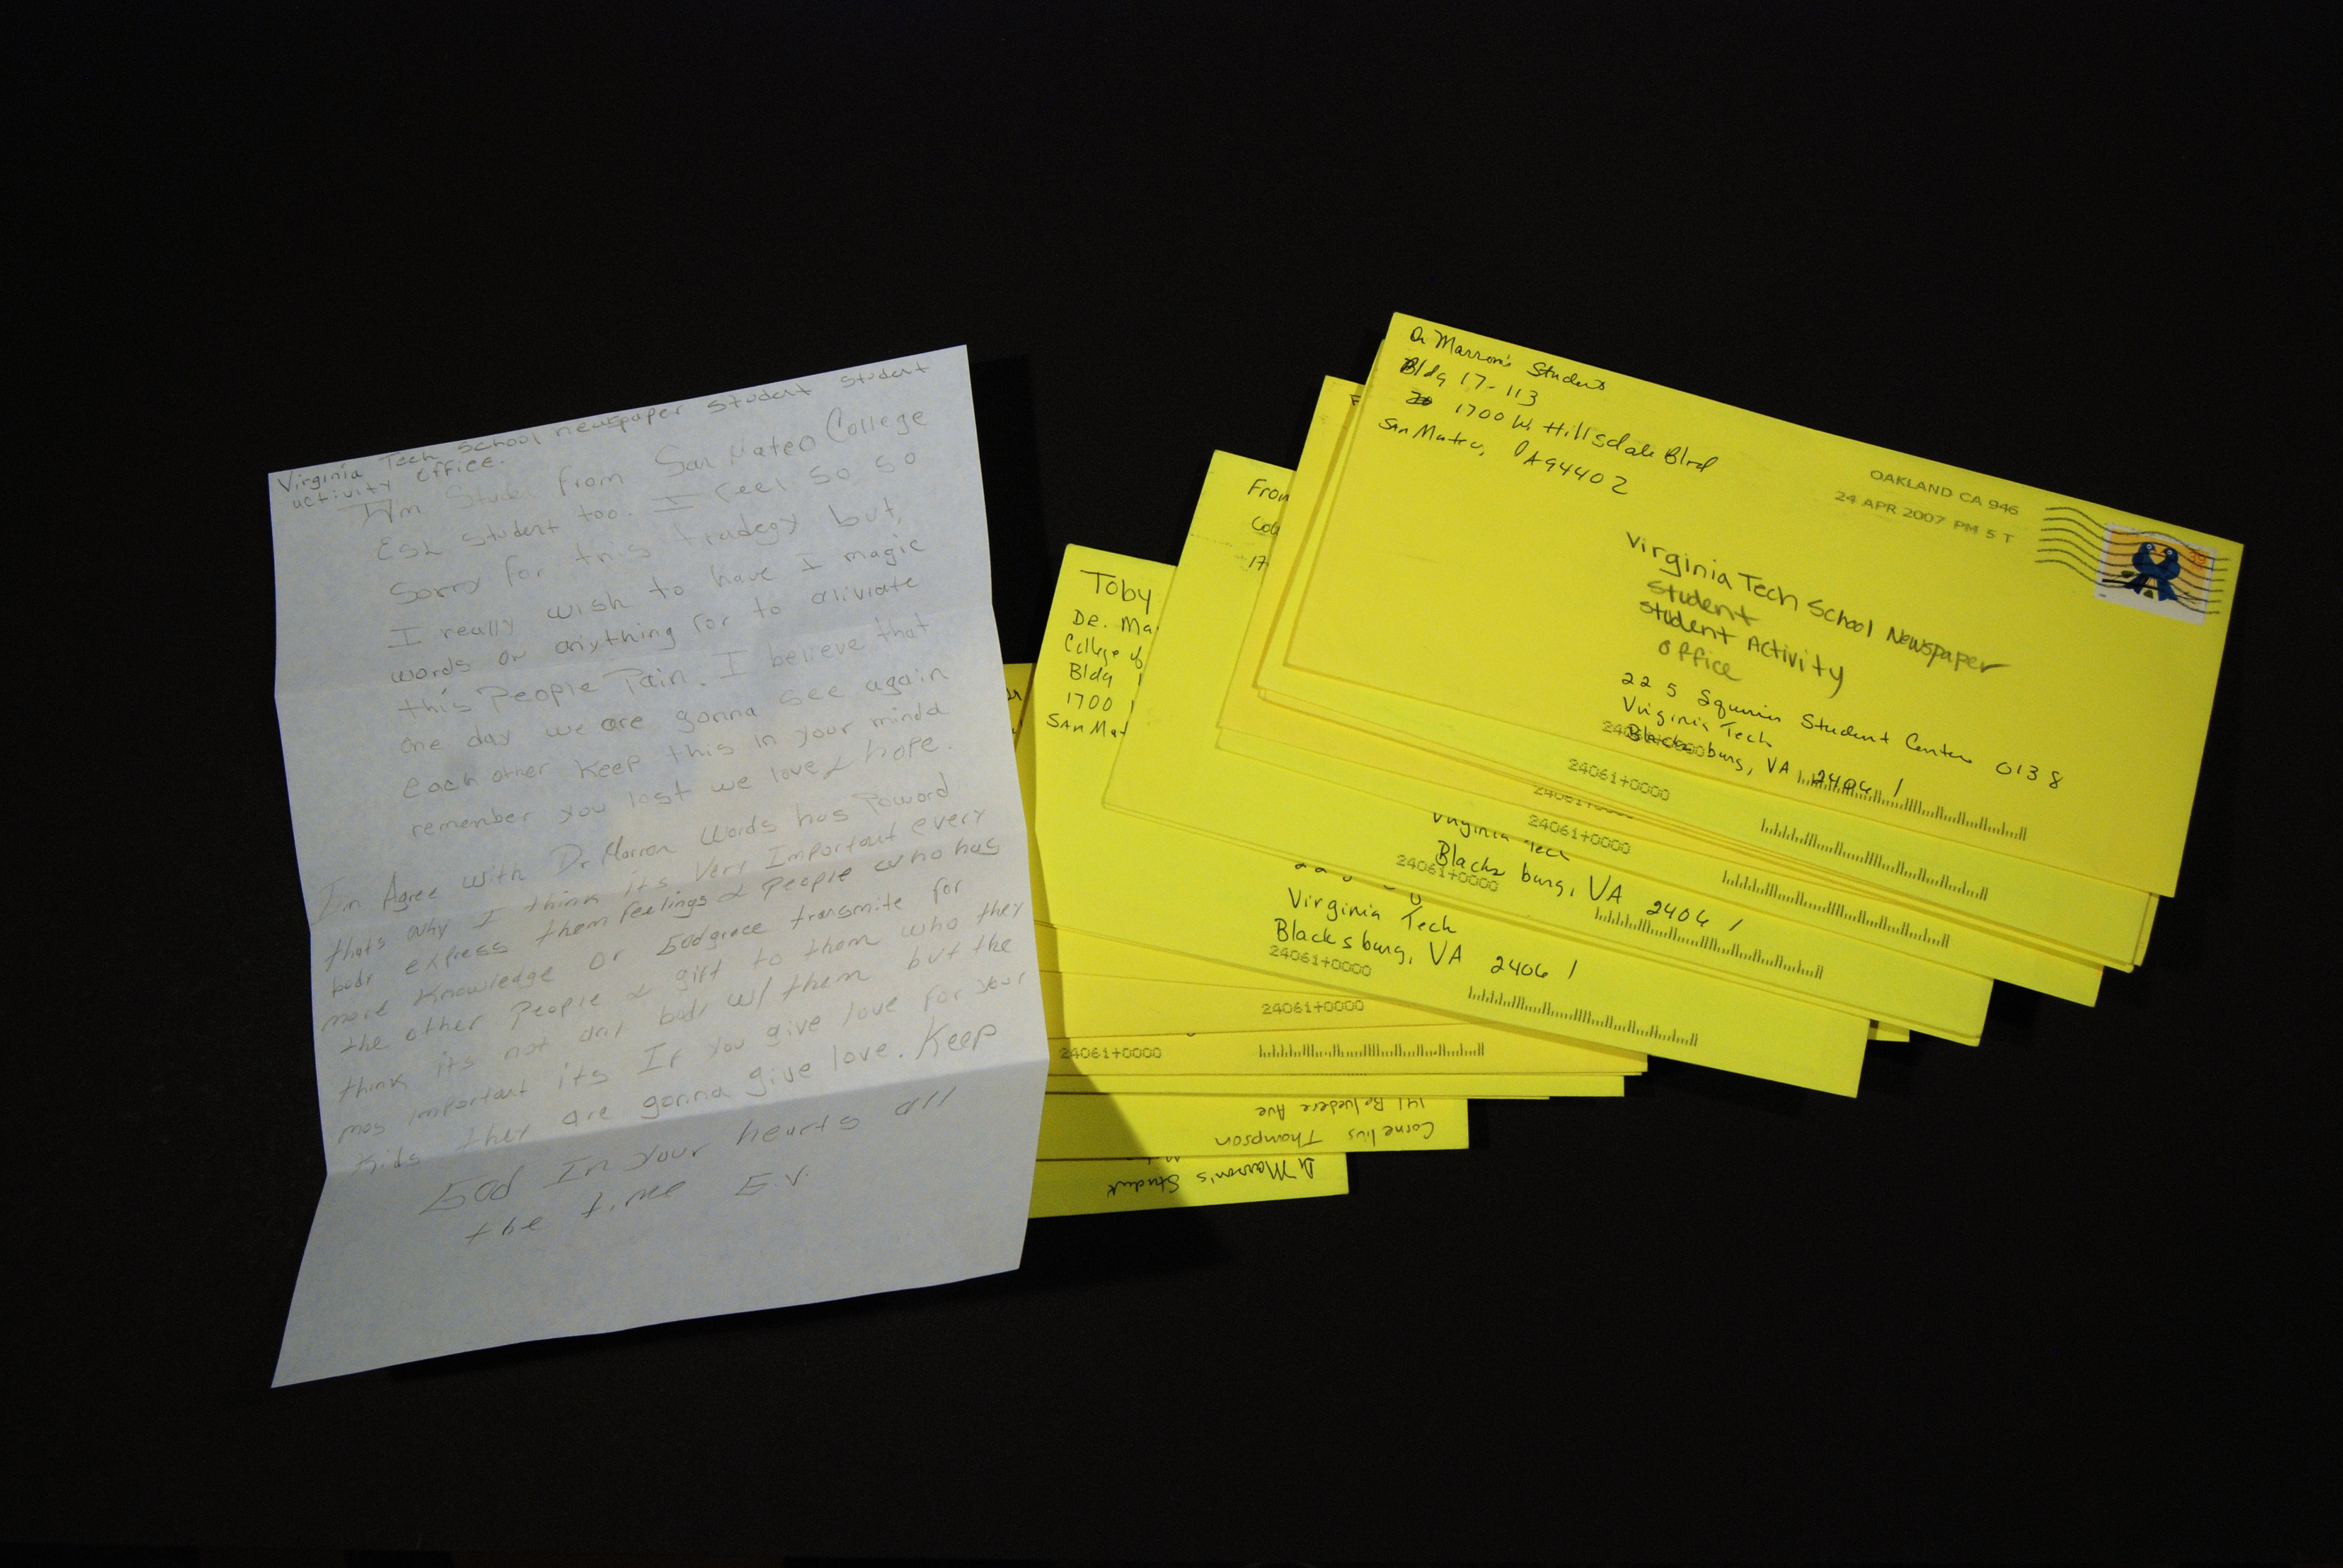 Virginia Tech School newspaper student student
activity office.
I'm Studen from San Mateo College
ESL student too. I feel so so
Sorry for this tradegy but,
I really wish to have I magic
words or anything for to aliviate
this People Pain. I believe that
one day we are gonna see again
each other keep this in your mind
remember you last we love & hope.
I'm Agree with Dr Marron Words has Poword
thats why I think its Very Important every
bodr express them feelings & People who has
more knowledge or Godgrace transmite for
the other People & gift to them who they
think its not any body w/ them but the
mos important its If you give love for your
kids they are gonna give love. Keep
God In your hearts all
the time E.V.
Dr Marron's Student
Bldg 17-113
1700 W. Hillsdale Blvd
San Mateo, CA 94402
OAKLAND CA 946
24 APR 2007 PM 5 T
39
Virginia Tech School Newspaper
Student
Student Activity
Office
225 Squires Student Center 0138
Virginia Tech
Blacksburg, VA 24061
24061+0000
24061+0000
24061+0000
24061+0000
F
From
Col
17
Virginia Tech
Blacksburg, VA 24061
24061+0000
Toby
De. Ma
College of
Bldg 1
1700
San Mat
Virginia Tech
Blacksburg, VA 24061
24061+0000
24061+0000
24061+0000
Cornelius Thompson
141 Belvedere Ave
Dr Marron's Student